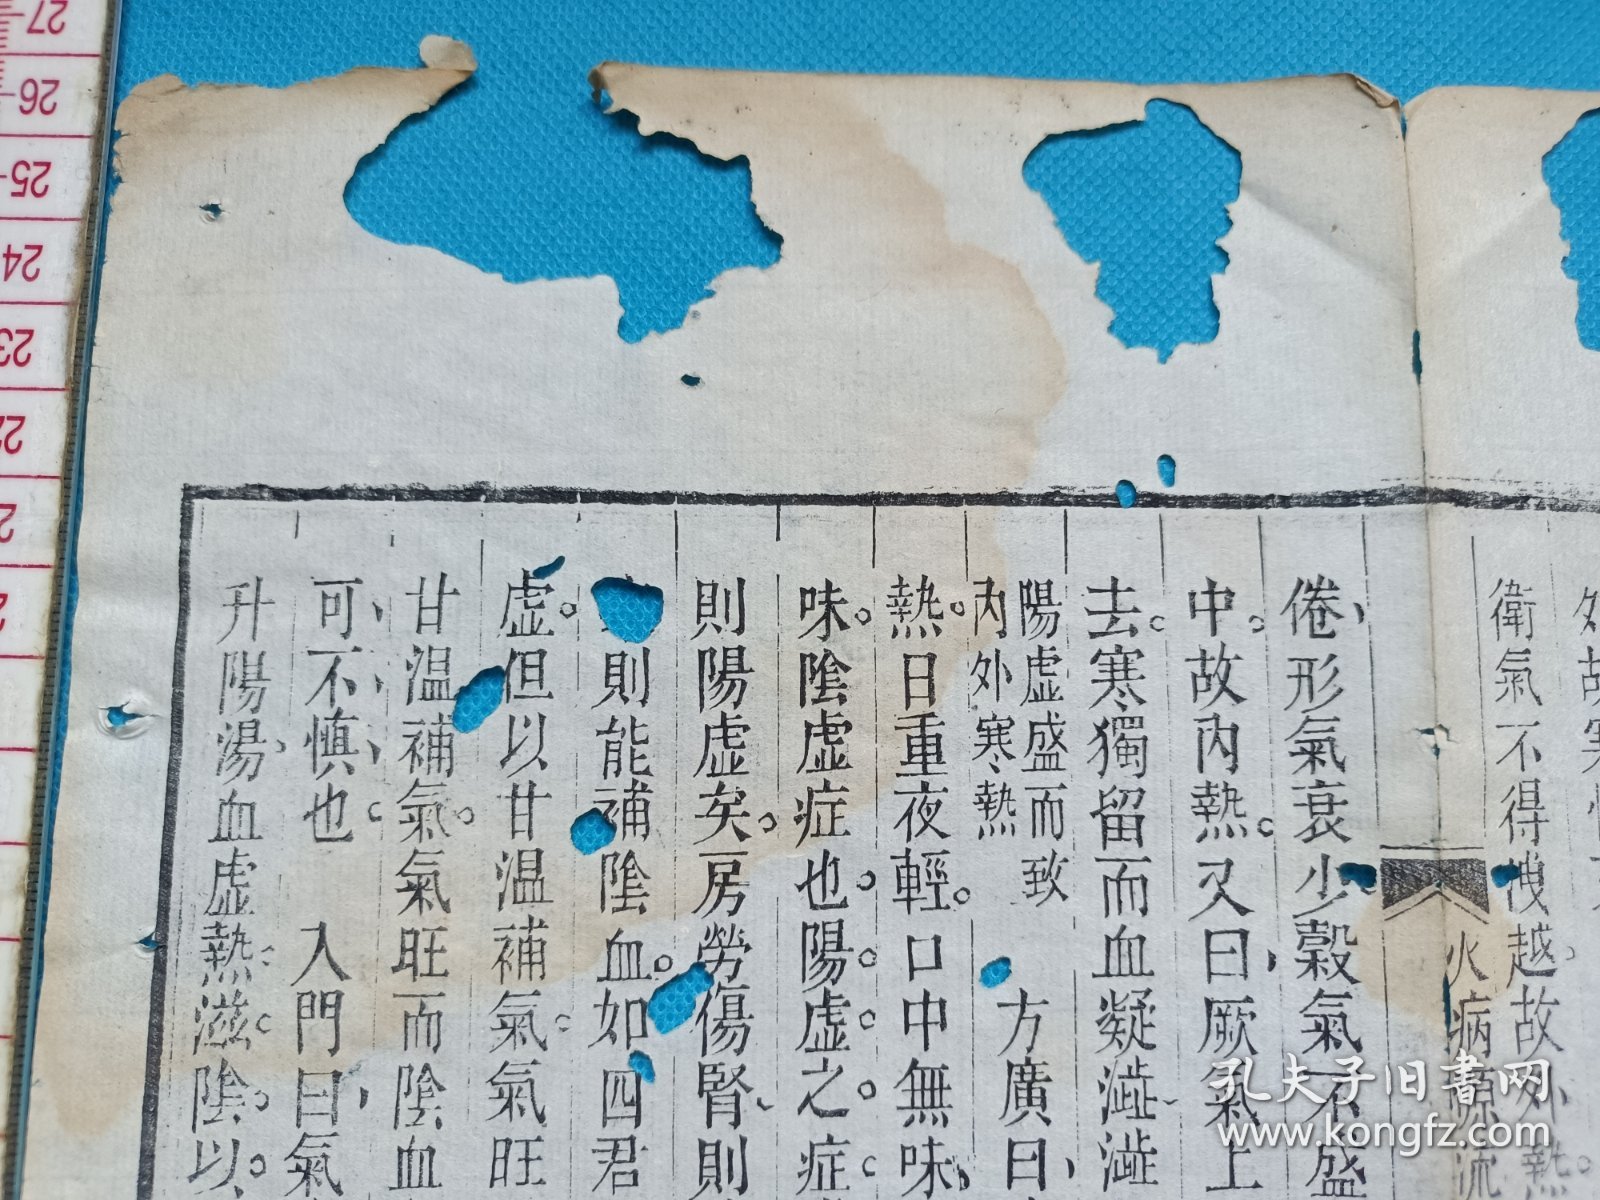 衛氣不得洩越故外熱
火病源流
倦形氣衰少榖氣不盛
中故內熱又曰厥氣上
去寒獨留而血凝澁澁
陽虛盛而致
內外寒熱
方廣曰
熱日重夜輕口中無味
味陰虛症也陽虛之症
則陽虛矣房勞傷腎則
則能補陰血如四君
虛但以甘温補氣氣旺
甘温補氣氣旺而陰血
可不慎也 入門曰氣
升陽湯血虛熱滋陰以
27
26
25
24
23
22
孔夫子旧書网
www.kongfz.com